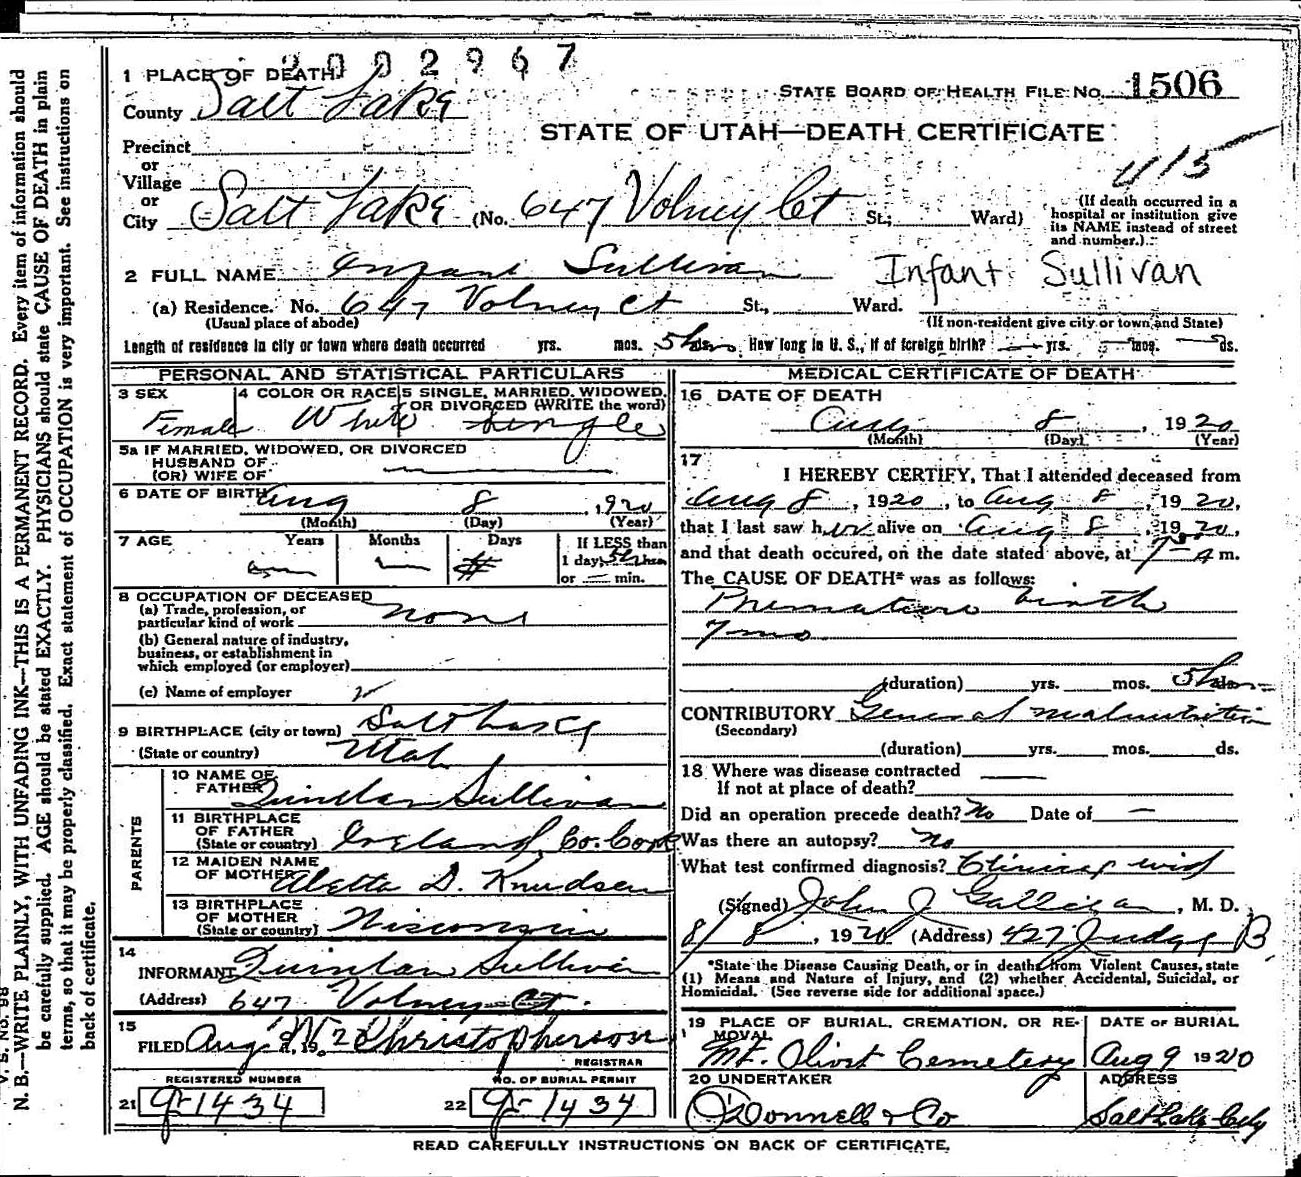 2002967
1 PLACE OF DEATH
STATE BOARD OF HEALTH FILE NO. 1506
County Salt Lake
STATE OF UTAH—DEATH CERTIFICATE
Precinct
or
Village
or
City Salt Lake (No. 647 Volney Ct St; Ward)
(If death occurred in a
hospital or institution give
its NAME instead of street
and number.)
2 FULL NAME Infant Sullivan Infant Sullivan
(a) Residence. No. 647 Volney Ct St., Ward.
(Usual place of abode) (If non-resident give city or town and State)
Length of residence in city or town where death occurred yrs. mos. 5 hrs How long in U. S., if of foreign birth? — yrs. — mos. — ds.
PERSONAL AND STATISTICAL PARTICULARS
3 SEX
Female
4 COLOR OR RACE
White
5 SINGLE, MARRIED, WIDOWED,
OR DIVORCED (WRITE the word)
Single
5a IF MARRIED, WIDOWED, OR DIVORCED
HUSBAND OF
(OR) WIFE OF —
6 DATE OF BIRTH Aug 8, 1920
(Month) (Day) (Year)
7 AGE Years Months Days If LESS than
1 day, 5 hrs
or — min.
8 OCCUPATION OF DECEASED
(a) Trade, profession, or
particular kind of work none
(b) General nature of industry,
business, or establishment in
which employed (or employer)
(c) Name of employer
9 BIRTHPLACE (city or town) Salt Lake Cy
(State or country) Utah
PARENTS
10 NAME OF
FATHER Quinlan Sullivan
11 BIRTHPLACE
OF FATHER
(State or country) Ireland, Co. Cork
12 MAIDEN NAME
OF MOTHER Aletta D. Knudsen
13 BIRTHPLACE
OF MOTHER
(State or country) Wisconsin
14
INFORMANT Quinlan Sullivan
(Address) 647 Volney Ct.
15
FILED Aug 9, 1920 Christopherson
REGISTRAR
REGISTERED NUMBER NO. OF BURIAL PERMIT
21 g-1434 22 g-1434
MEDICAL CERTIFICATE OF DEATH
16 DATE OF DEATH
Aug 8, 1920
(Month) (Day) (Year)
17
I HEREBY CERTIFY, That I attended deceased from
Aug 8, 1920, to Aug 8, 1920,
that I last saw her alive on Aug 8, 1920,
and that death occured, on the date stated above, at 7 — a m.
The CAUSE OF DEATH* was as follows:
Premature birth
7 mo
(duration) yrs. mos. 5 hrs
CONTRIBUTORY General malnutrition
(Secondary)
(duration) yrs. mos. ds.
18 Where was disease contracted
If not at place of death?
Did an operation precede death? No Date of —
Was there an autopsy? No
What test confirmed diagnosis? Clinical
(Signed) John J Galligan, M. D.
8/8, 1920 (Address) 427 Judge B
*State the Disease Causing Death, or in deaths from Violent Causes, state
(1) Means and Nature of Injury, and (2) whether Accidental, Suicidal, or
Homicidal. (See reverse side for additional space.)
19 PLACE OF BURIAL, CREMATION, OR RE-
MOVAL
Mt. Olivet Cemetery
DATE OF BURIAL
Aug 9 1920
20 UNDERTAKER
O'Donnell & Co
ADDRESS
Salt Lake City
READ CAREFULLY INSTRUCTIONS ON BACK OF CERTIFICATE.
V. S. No. 98
N. B.—WRITE PLAINLY, WITH UNFADING INK—THIS IS A PERMANENT RECORD. Every item of information should
be carefully supplied. AGE should be stated EXACTLY. PHYSICIANS should state CAUSE OF DEATH in plain
terms, so that it may be properly classified. Exact statement of OCCUPATION is very important. See instructions on
back of certificate.